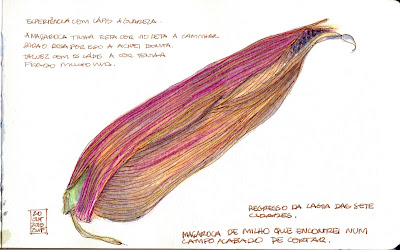 EXPERIÊNCIA COM LÁPIS AGUARELA.
A MAÇAROCA TINHA ESTA COR VIOLETA A CAMINHAR
PARA O ROSA POR ISSO A ACHEI BONITA.
TALVEZ COM OS LÁPIS A COR TENHA
FICADO MUITO VIVA.
REGRESSO DA LAGOA DAS SETE
CIDADES.
MAÇAROCA DE MILHO QUE ENCONTREI NUM
CAMPO ACABADO DE CORTAR.
20
OUT
2010